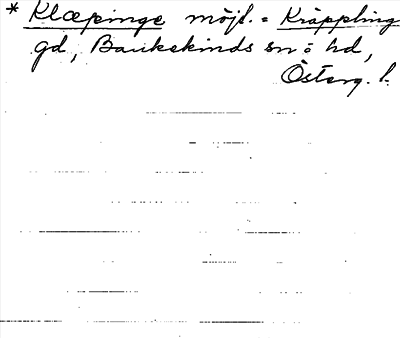 * Klæpinge möjl. = Kräppling
gd, Bankekinds sn o hd,
Österg. l.